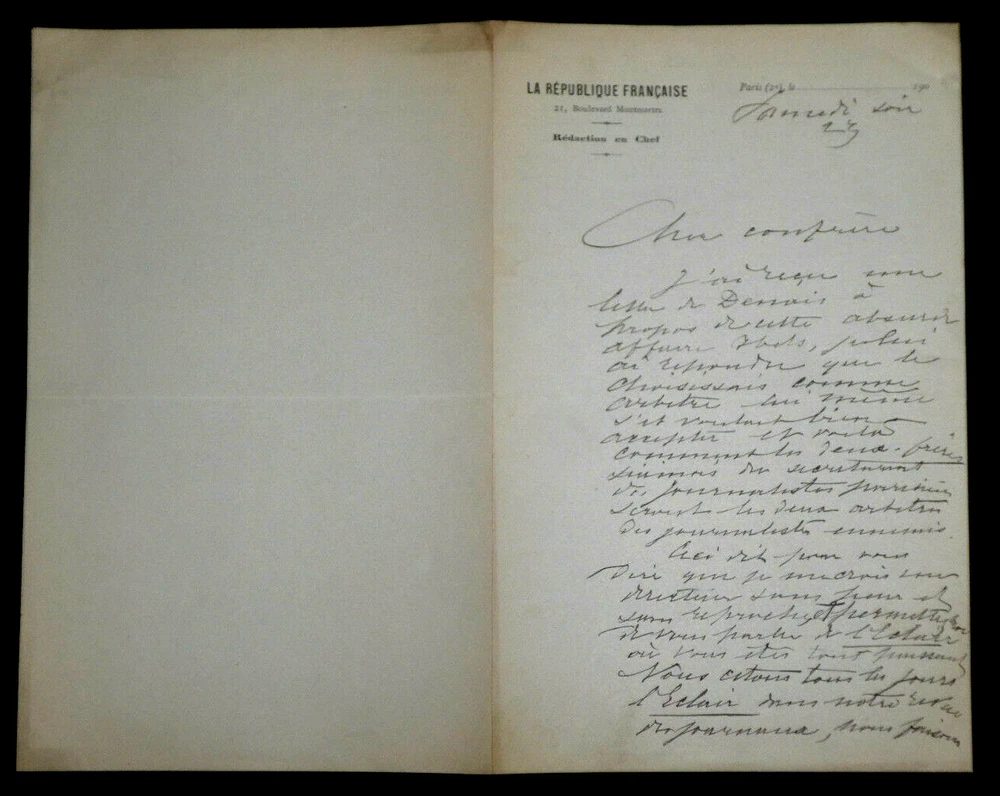 LA RÉPUBLIQUE FRANÇAISE
21, Boulevard Montmartre
Rédaction en Chef
Paris (2e), le 190
Samedi soir
Cher confrère
J'ai reçu une
lettre de Denais à
propos de cette absurde
affaire je lui
ai répondu que le
choisissais comme
arbitre lui même
s'il voulait bien
accepter et voilà
comment les deux frères
siamois du secrétariat
des journalistes parisiens
seront les deux arbitres
des journalistes ennemis.
Ceci dit pour vous
dire que je me crois un
directeur sans peur et
sans reproche, et permettez moi
de vous parler de l'Eclair
où vous êtes tout puissant
Nous citons tous les jours
l'Eclair dans notre revue
des journaux, nous faisons